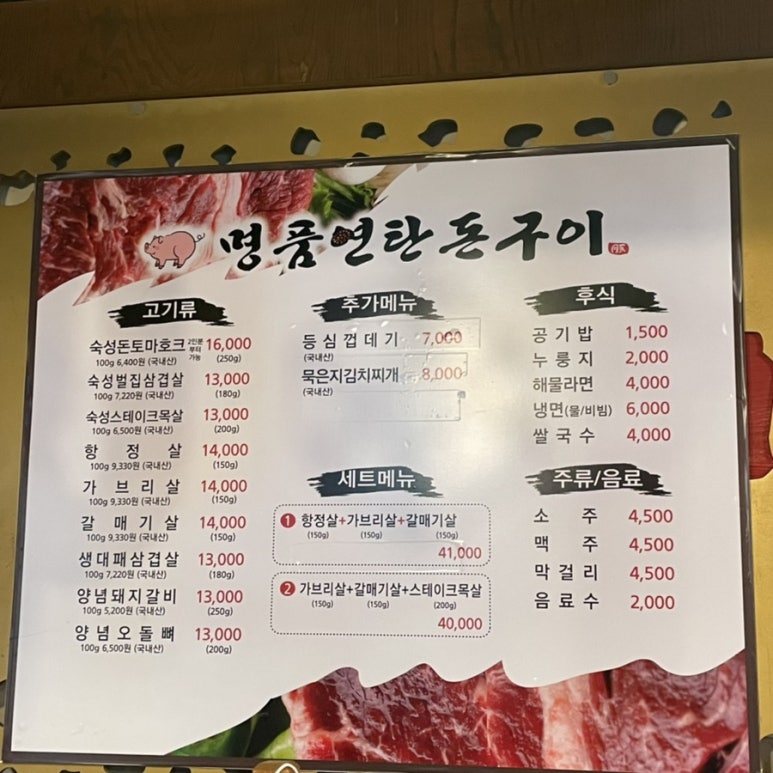 명품연탄돈구이
고기류
숙성돈토마호크 2인분부터 가능 16,000
100g 6,400원 (국내산) (250g)
숙성벌집삼겹살 13,000
100g 7,220원 (국내산) (180g)
숙성스테이크목살 13,000
100g 6,500원 (국내산) (200g)
항정살 14,000
100g 9,330원 (국내산) (150g)
가브리살 14,000
100g 9,330원 (국내산) (150g)
갈매기살 14,000
100g 9,330원 (국내산) (150g)
생대패삼겹살 13,000
100g 7,220원 (국내산) (180g)
양념돼지갈비 13,000
100g 5,200원 (국내산) (250g)
양념오돌뼈 13,000
100g 6,500원 (국내산) (200g)
추가메뉴
등심껍데기 7,000
(국내산)
묵은지김치찌개 8,000
(국내산)
세트메뉴
1 항정살+가브리살+갈매기살
(150g) (150g) (150g)
41,000
2 가브리살+갈매기살+스테이크목살
(150g) (150g) (200g)
40,000
후식
공기밥 1,500
누룽지 2,000
해물라면 4,000
냉면(물/비빔) 6,000
쌀국수 4,000
주류/음료
소주 4,500
맥주 4,500
막걸리 4,500
음료수 2,000